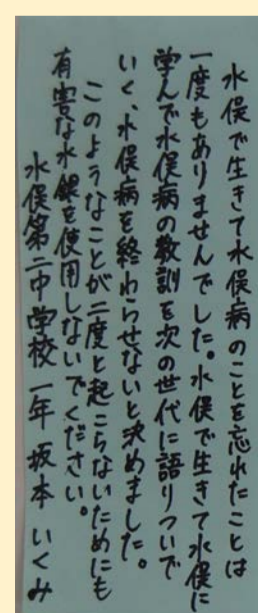 水俣で生きて水俣病のことを忘れたことは
一度もありませんでした。水俣で生きて水俣に
学んで水俣病の教訓を次の世代に語りついで
いく、水俣病を終わらせないと決めました。
このようなことが二度と起こらないためにも
有害な水銀を使用しないでください。
水俣第二中学校一年 坂本 いくみ